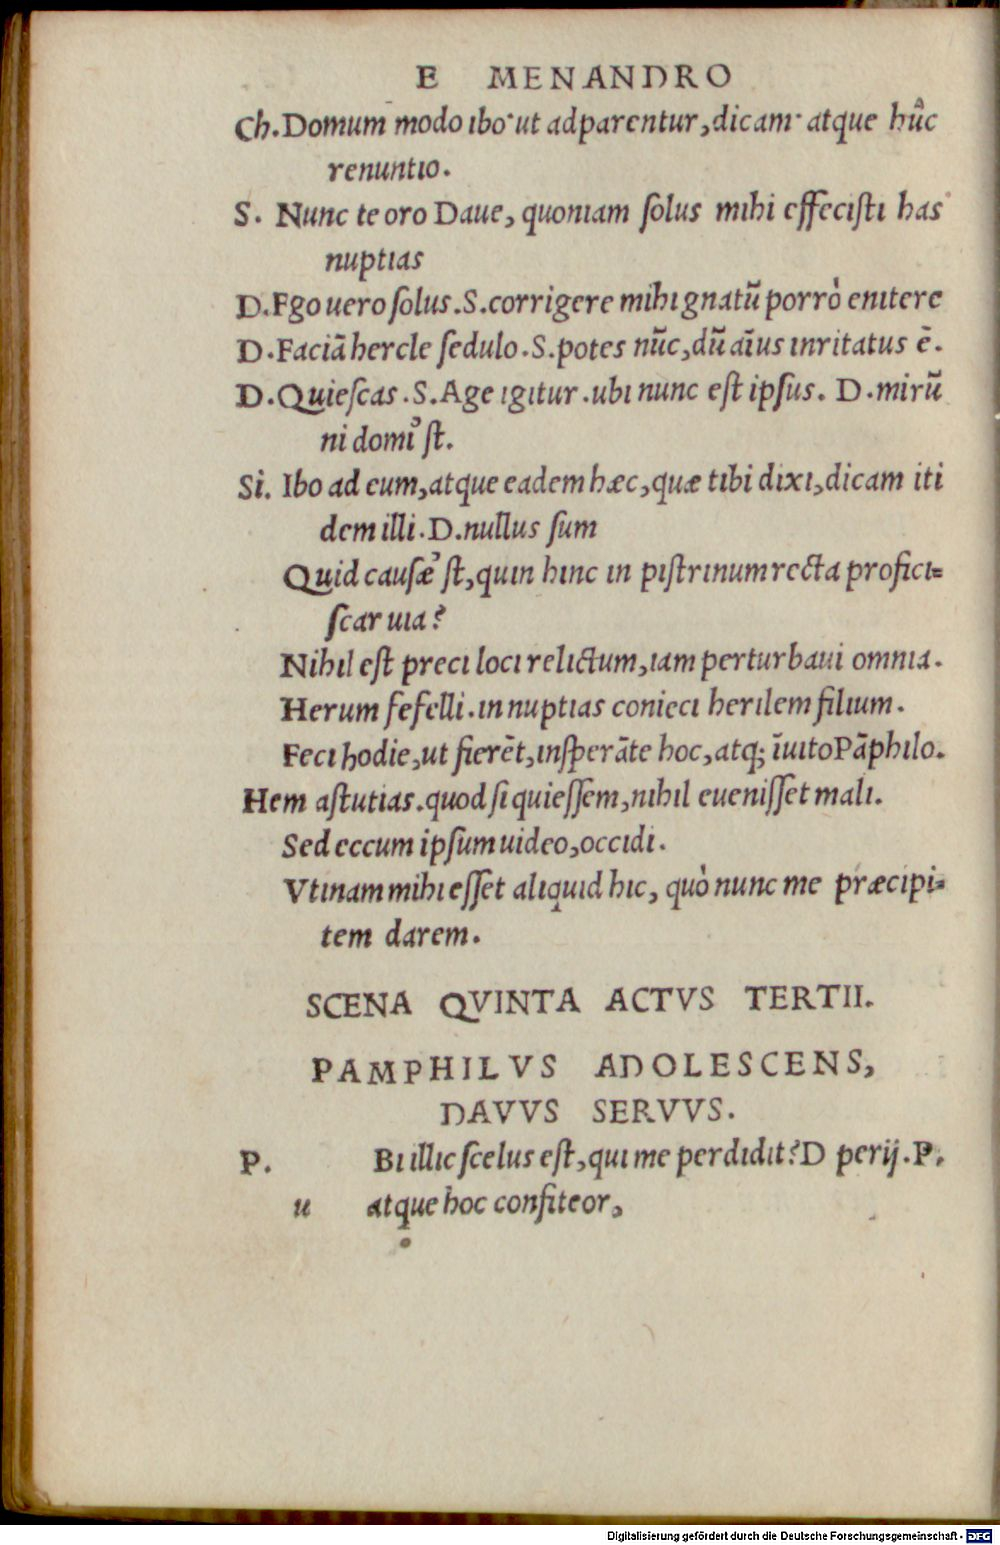 E MENANDRO
Ch. Domum modo ibo˙ ut adparentur, dicam˙ atque hûc
renuntio.
S. Nunc te oro Daue, quoniam ſolus mihi effeciſti has
nuptias
D. Ego uero ſolus. S. corrigere mihi gnatū porrò enitere
D. Faciā hercle ſedulo. S. potes nūc, dū aīus inritatus ē.
D. Quieſcas. S. Age igitur. ubi nunc eſt ipſus. D. mirū
ni domi’ſt.
Si. Ibo ad eum, atque eadem hæc, quæ tibi dixi, dicam iti
dem illi. D. nullus ſum
Quid cauſæ’ſt, quin hinc in piſtrinum recta profici=
ſcar uia?
Nihil eſt preci loci relictum, iam perturbaui omnia.
Herum fefelli. in nuptias conieci herilem filium.
Feci hodie, ut fierēt, inſperāte hoc, atq; īuito Pāphilo.
Hem aſtutias. quod ſi quieſſem, nihil eueniſſet mali.
Sed eccum ipſum uideo, occidi.
Vtinam mihi eſſet aliquid hic, quò nunc me præcipi=
tem darem.
SCENA QVINTA ACTVS TERTII.
PAMPHILVS ADOLESCENS,
DAVVS SERVVS.
P. Bi illic ſcelus eſt, qui me perdidit? D perij. P.
u atque hoc confiteor,
Digitalisierung gefördert durch die Deutsche Forschungsgemeinschaft - DFG